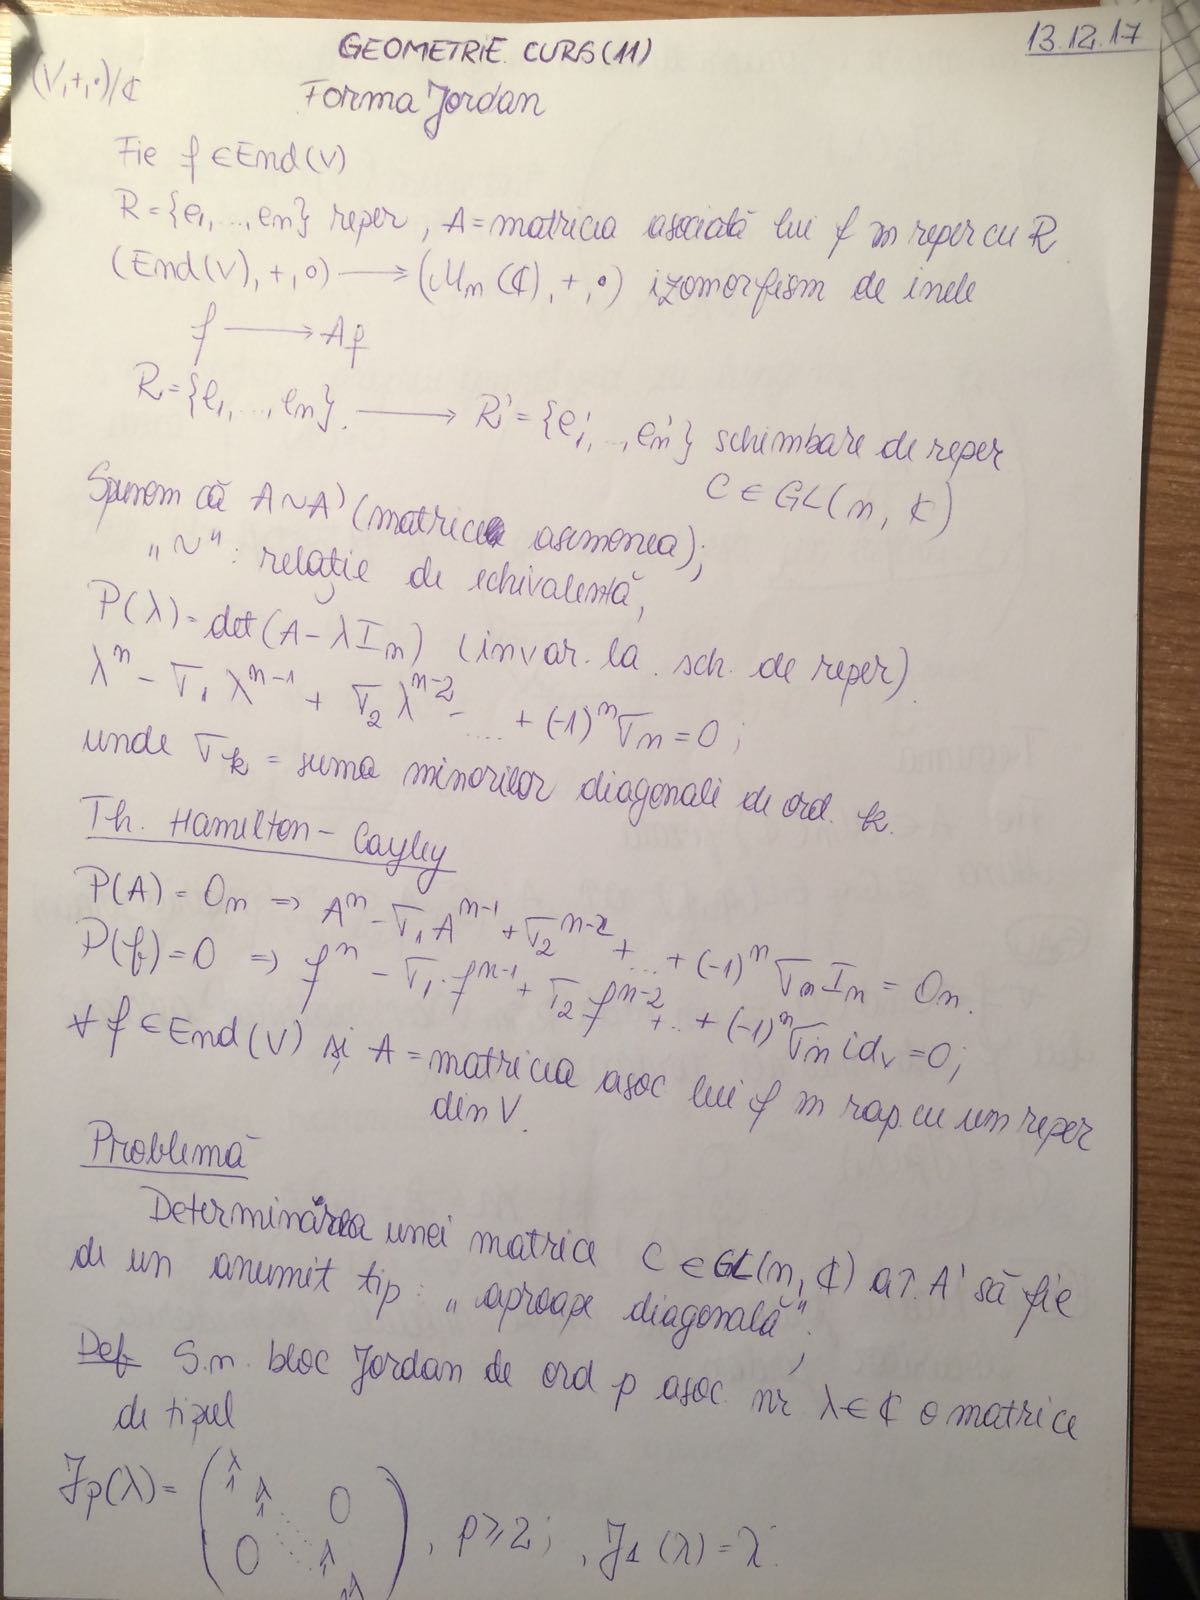 GEOMETRIE CURS (11)
13.12.17
(V,+,·)/ℂ
Forma Jordan
Fie f ∈ End(V)
R = {e1, ..., en} reper, A = matricea asociată lui f în reper cu R
(End(V), +, ∘) ⟶ (Mn(ℂ), +, ·) izomorfism de inele
f ⟶ Af
R = {e1, ..., en}. ⟶ R' = {e1', ..., en'} schimbare de reper
C ∈ GL(n, ℂ)
Spunem că A ~ A' (matrice asemenea);
„~": relație de echivalență,
P(λ) = det(A - λIn) (invar. la sch. de reper)
λ^n - σ1 λ^(n-1) + σ2 λ^(n-2) - ... + (-1)^n σn = 0;
unde σk = suma minorilor diagonali de ord. k.
Th. Hamilton - Cayley
P(A) = On ⇒ A^n - σ1 A^(n-1) + σ2^(n-2) + ... + (-1)^n σn In = On.
P(f) = 0 ⇒ f^n - σ1 · f^(n-1) + σ2 f^(n-2) + .. + (-1)^n σn idv = 0;
∀ f ∈ End(V) și A = matricea asoc lui f în rap. cu un reper
din V.
Problemă
Determinarea unei matrice C ∈ GL(n, ℂ) a.î. A' să fie
de un anumit tip: „aproape diagonală";
Def S.n. bloc Jordan de ord p asoc. nr λ ∈ ℂ o matrice
de tipul
Jp(λ) = ( λ 1 λ 1 0 0 λ 1 λ ), p ≥ 2; , J1(λ) = λ.